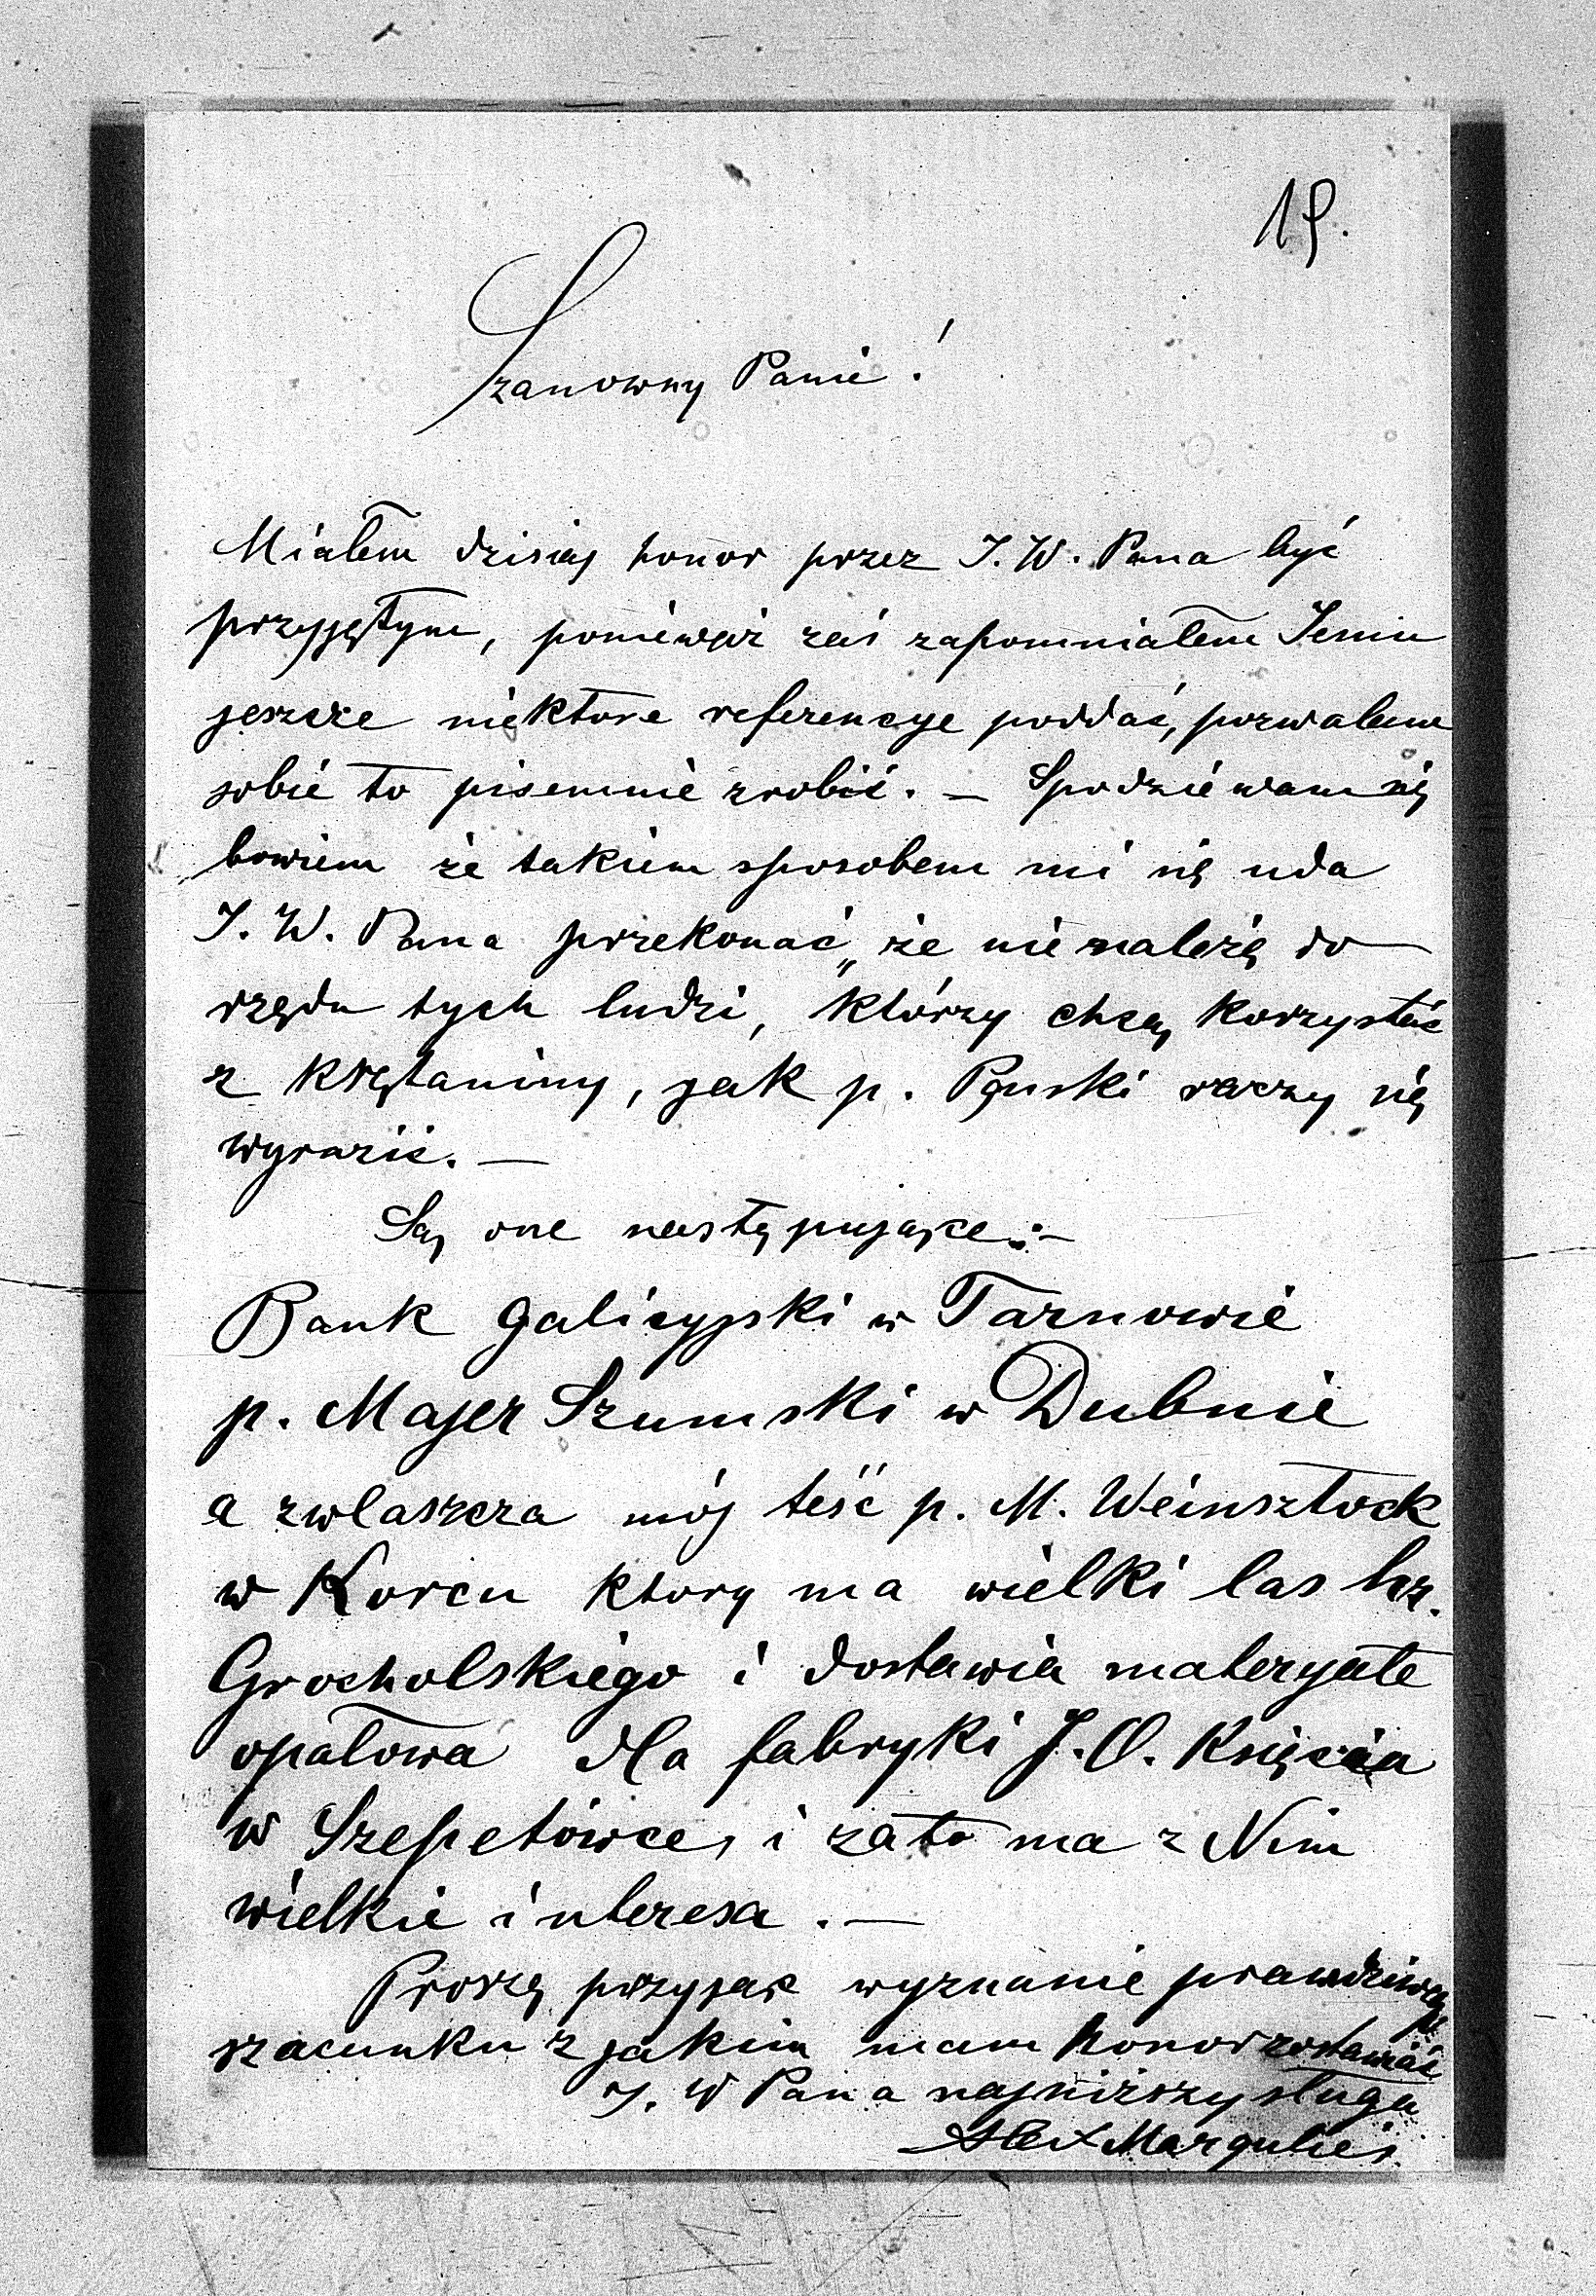 19.
Szanowny Panie!
Miałem dzisiaj honor przez J. W. Pana być
przyjętym, ponieważ zaś zapomniałem Jemu
jeszcze niektóre referencye poddać, pozwalam
sobie to pisemnie zrobić. — Spodziewam się
bowiem że takiem sposobem mi się uda
J. W. Pana przekonać, że nie należę do
rzędu tych ludzi, którzy chcą korzystać
z krętaniny, jak p. raczy się
wyrazić. —
Są one następujące:—
Bank galicyjski w Tarnowie
p. Majer Szumski w Dubnie
a zwlaszcza mój teść p. M. Weinsztock
w Korcu ktory ma wielki las hr.
Grocholskiego i dostawia materyałe
opałowa dla fabryki J. O. Księcia
w Szepetówce, i zato ma z Nim
wielkie interesa. —
Proszę przyjąć wyznanie prawdziwego
szacunku z jakim mam honor zostawać
J. W Pana najniższy sługa
Alex Margulies.